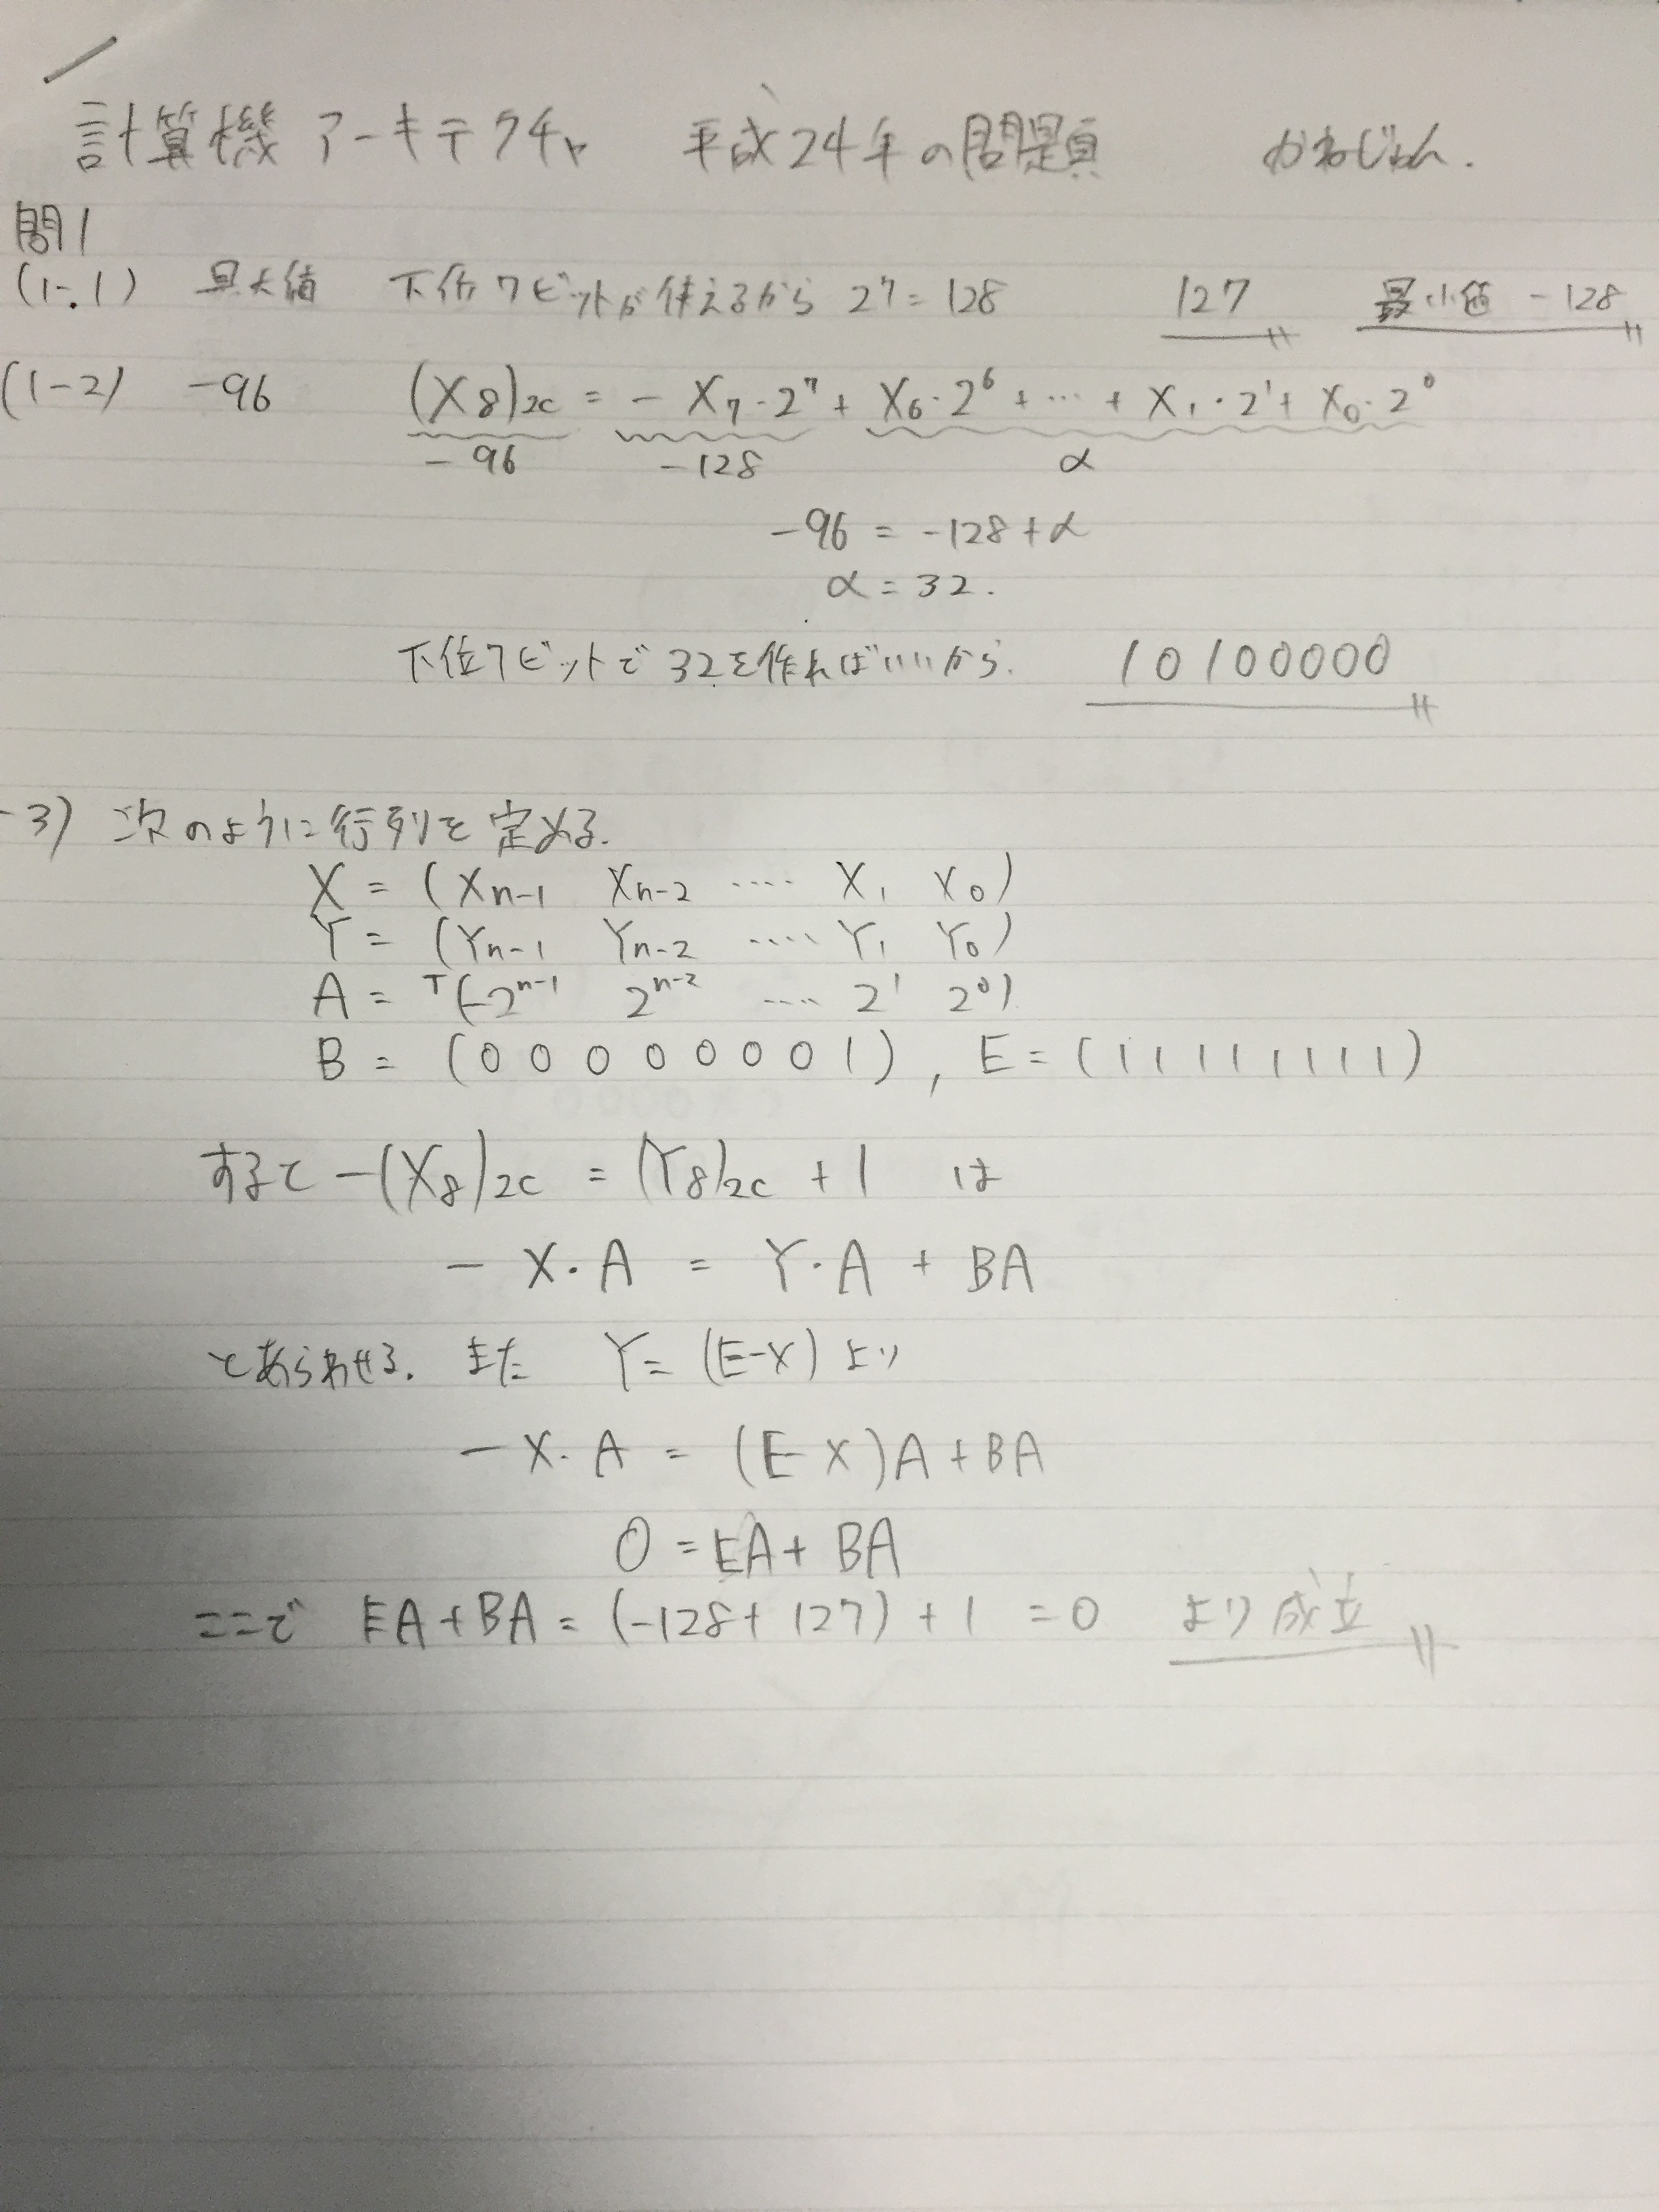 計算機アーキテクチャ 平成24年の問題 かねじゅん.
問1
(1-.1) 最大値 下位7ビットが使えるから 2⁷=128 127 最小値 -128
(1-2) -96 (X8)2c = - X7・2⁷ + X6・2⁶ + … + X1・2¹ + X0・2⁰
-96 -128 α
-96 = -128+α
α = 32.
下位7ビットで32を作ればいいから. 10100000
-3) 次のように行列を定める.
X = (Xn-1 Xn-2 …. X1 X0)
Y = (Yn-1 Yn-2 …. Y1 Y0)
A = ᵀ(-2ⁿ⁻¹ 2ⁿ⁻² …. 2¹ 2⁰)
B = (0 0 0 0 0 0 0 1), E = (1 1 1 1 1 1 1 1)
すると -(X8)2c = (Y8)2c + 1 は
- X・A = Y・A + BA
とあらわせる. また Y = (E-X) より
- X・A = (E X)A + BA
0 = EA + BA
ここで EA + BA = (-128 + 127) + 1 = 0 より成立